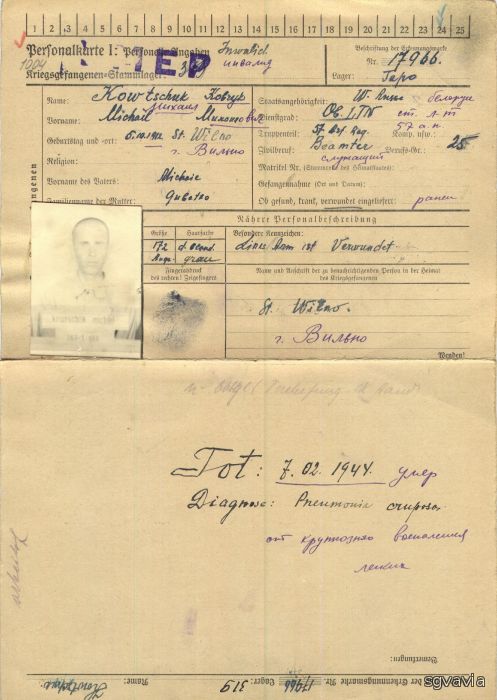 1 2 3 4 5 6 7 8 9 10 11 12 13 14 15 16 17 18 19 20 21 22 23 24 25
Personalkarte I: Personelle Angaben
Invalid
инвалид
Beschriftung der Erkennungsmarke
Nr. 17966.
1004
Kriegsgefangenen-Stammlager: 319
Lager:
Name: Kowtschuk
Staatsangehörigkeit:
белорус
Vorname: Michail
Михаил
Dienstgrad: Ob. LTN ст. л-т
Truppenteil: 57
Komp. usw.:
57 а.п.
Geburtstag und -ort: St. Wilno
г. Вильно
Zivilberuf: Beamter
служащий
Berufs-Gr.: 25
Religion:
Matrikel Nr. (Stammrolle des Heimatstaates):
Vorname des Vaters:
Gefangennahme (Ort und Datum):
Familienname der Mutter:
Ob gesund, krank, verwundet eingeliefert: ранен
Nähere Personalbeschreibung
Größe
Haarfarbe
Besondere Kennzeichen:
172
grau
Linke Arm ist Verwundet
Fingerabdruck
des rechten! Zeigefingers
Name und Anschrift der zu benachrichtigenden Person in der Heimat
des Kriegsgefangenen
St. Wilno.
г. Вильно
Wenden!
Tot: 7.02.1944. умер
Diagnose: Pneumonia cruposa
от крупозного воспаления
легких
Bemerkungen:
Nr. 17966 der Erkennungsmarke
Lager: 319
Name:
sgvavia